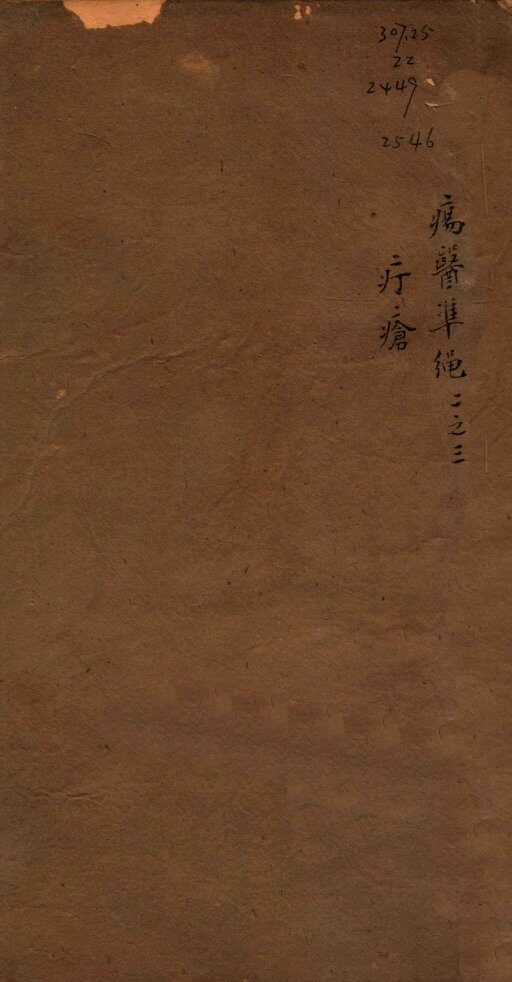 307.25
22
2449
2546
瘍醫準繩二之三
疔瘡